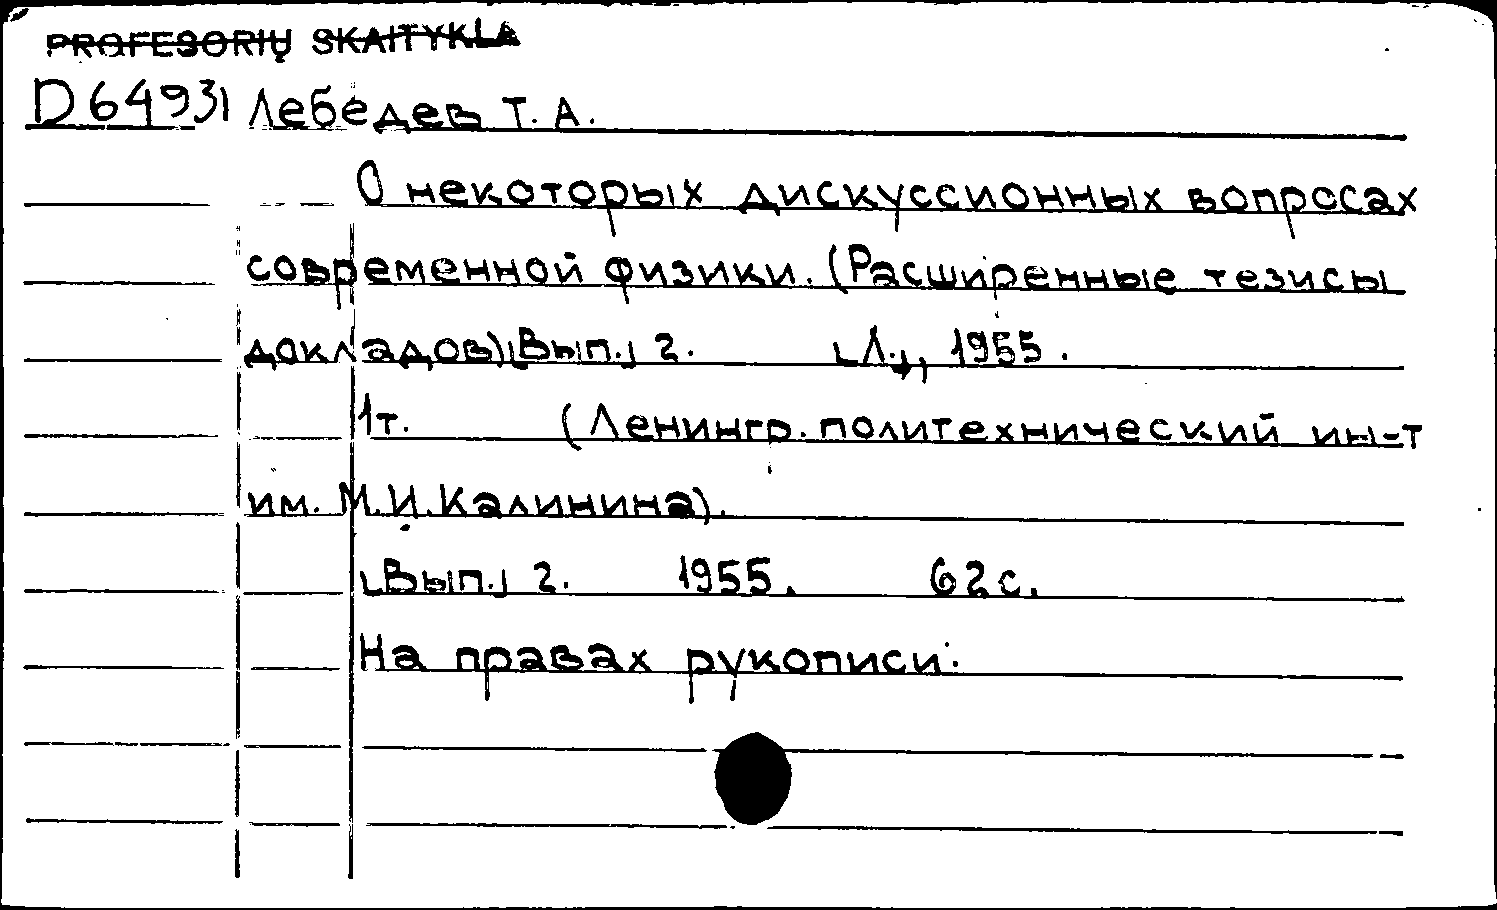 PROFESORIŲ SKAITYKLA
D 64931 Лебедев Т. А.
О некоторых дискуссионных вопросах
современной физики. (Расширенные тезисы
докладов) [Вып.] 2. [Л.], 1955.
1т. (Ленингр. политехнический ин-т
им. М.И. Калинина).
[Вып.] 2. 1955. 62с.
На правах рукописи.